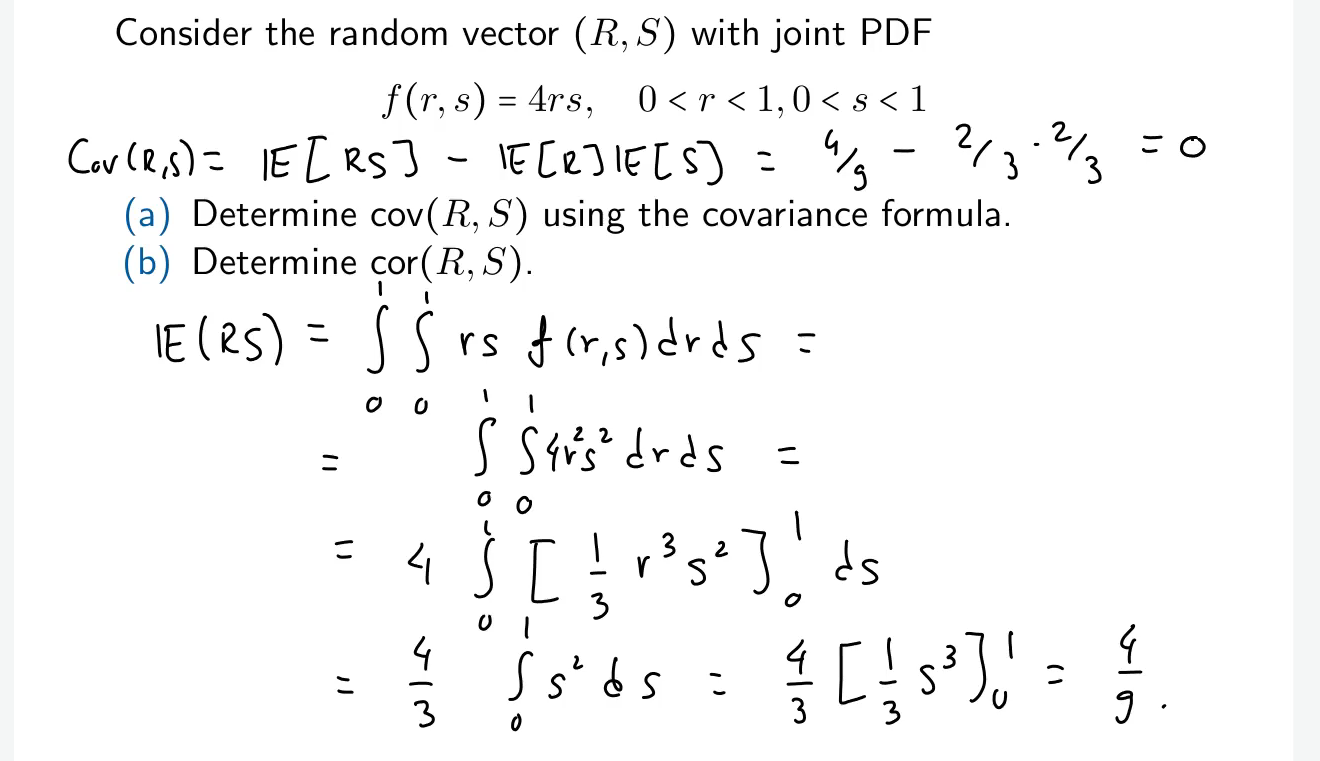 Consider the random vector (R, S) with joint PDF
f(r, s) = 4rs, 0 < r < 1, 0 < s < 1
Cov(R,S) = 𝔼[RS] - 𝔼[R]𝔼[S] = 4/9 - 2/3 · 2/3 = 0
(a) Determine cov(R, S) using the covariance formula.
(b) Determine cor(R, S).
𝔼(RS) = ∫₀¹ ∫₀¹ rs f(r,s) dr ds =
= ∫₀¹ ∫₀¹ 4r²s² dr ds =
= 4 ∫₀¹ [1/3 r³s²]₀¹ ds
= 4/3 ∫₀¹ s² ds = 4/3 [1/3 s³]₀¹ = 4/9.